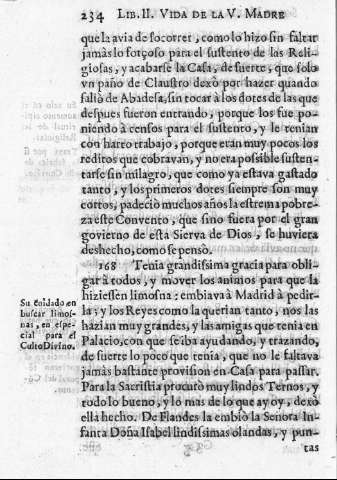 234 LIB. II. VIDA DE LA V. MADRE
que la avia de socorrer, como lo hizo sin faltar
jamàs lo forçoso para el sustento de las Reli-
giosas, y acabarse la Casa, de suerte, que solo
vn paño de Claustro dexò por hazer quando
saliò de Abadesa, sin tocar à los dotes de las que
despues fueron entrando, porque los fue po-
niendo à censos para el sustento, y le tenian
con harto trabajo, porque eran muy pocos los
reditos que cobravan, y no era possible susten-
tarse sin milagro, que como ya estava gastado
tanto, y los primeros dotes siempre son muy
cortos, padeciò muchos años la estrema pobre-
za este Convento, que sino fuera por el gran
govierno de esta Sierva de Dios, se huviera
deshecho, como se pensò.
168 Tenia grandissima gracia para obli-
gar à todos, y mover los animos para que la
hiziessen limosna: embiava à Madrid à pedir-
la; y los Reyes como la querian tanto, nos las
hazian muy grandes, y las amigas que tenia en
Palacio, con que se iba ayudando, y trazando,
de suerte lo poco que tenia, que no le faltava
jamàs bastante provision en Casa para passar.
Para la Sacristia procurò muy lindos Ternos, y
todo lo bueno, y lo mas de lo que ay oy, dexò
ella hecho. De Flandes la embiò la Señora In-
fanta Doña Isabel lindissimas olandas, y pun-
tas
Su cuidado en
buscar limos-
nas, en espe-
cial para el
Culto Divino.